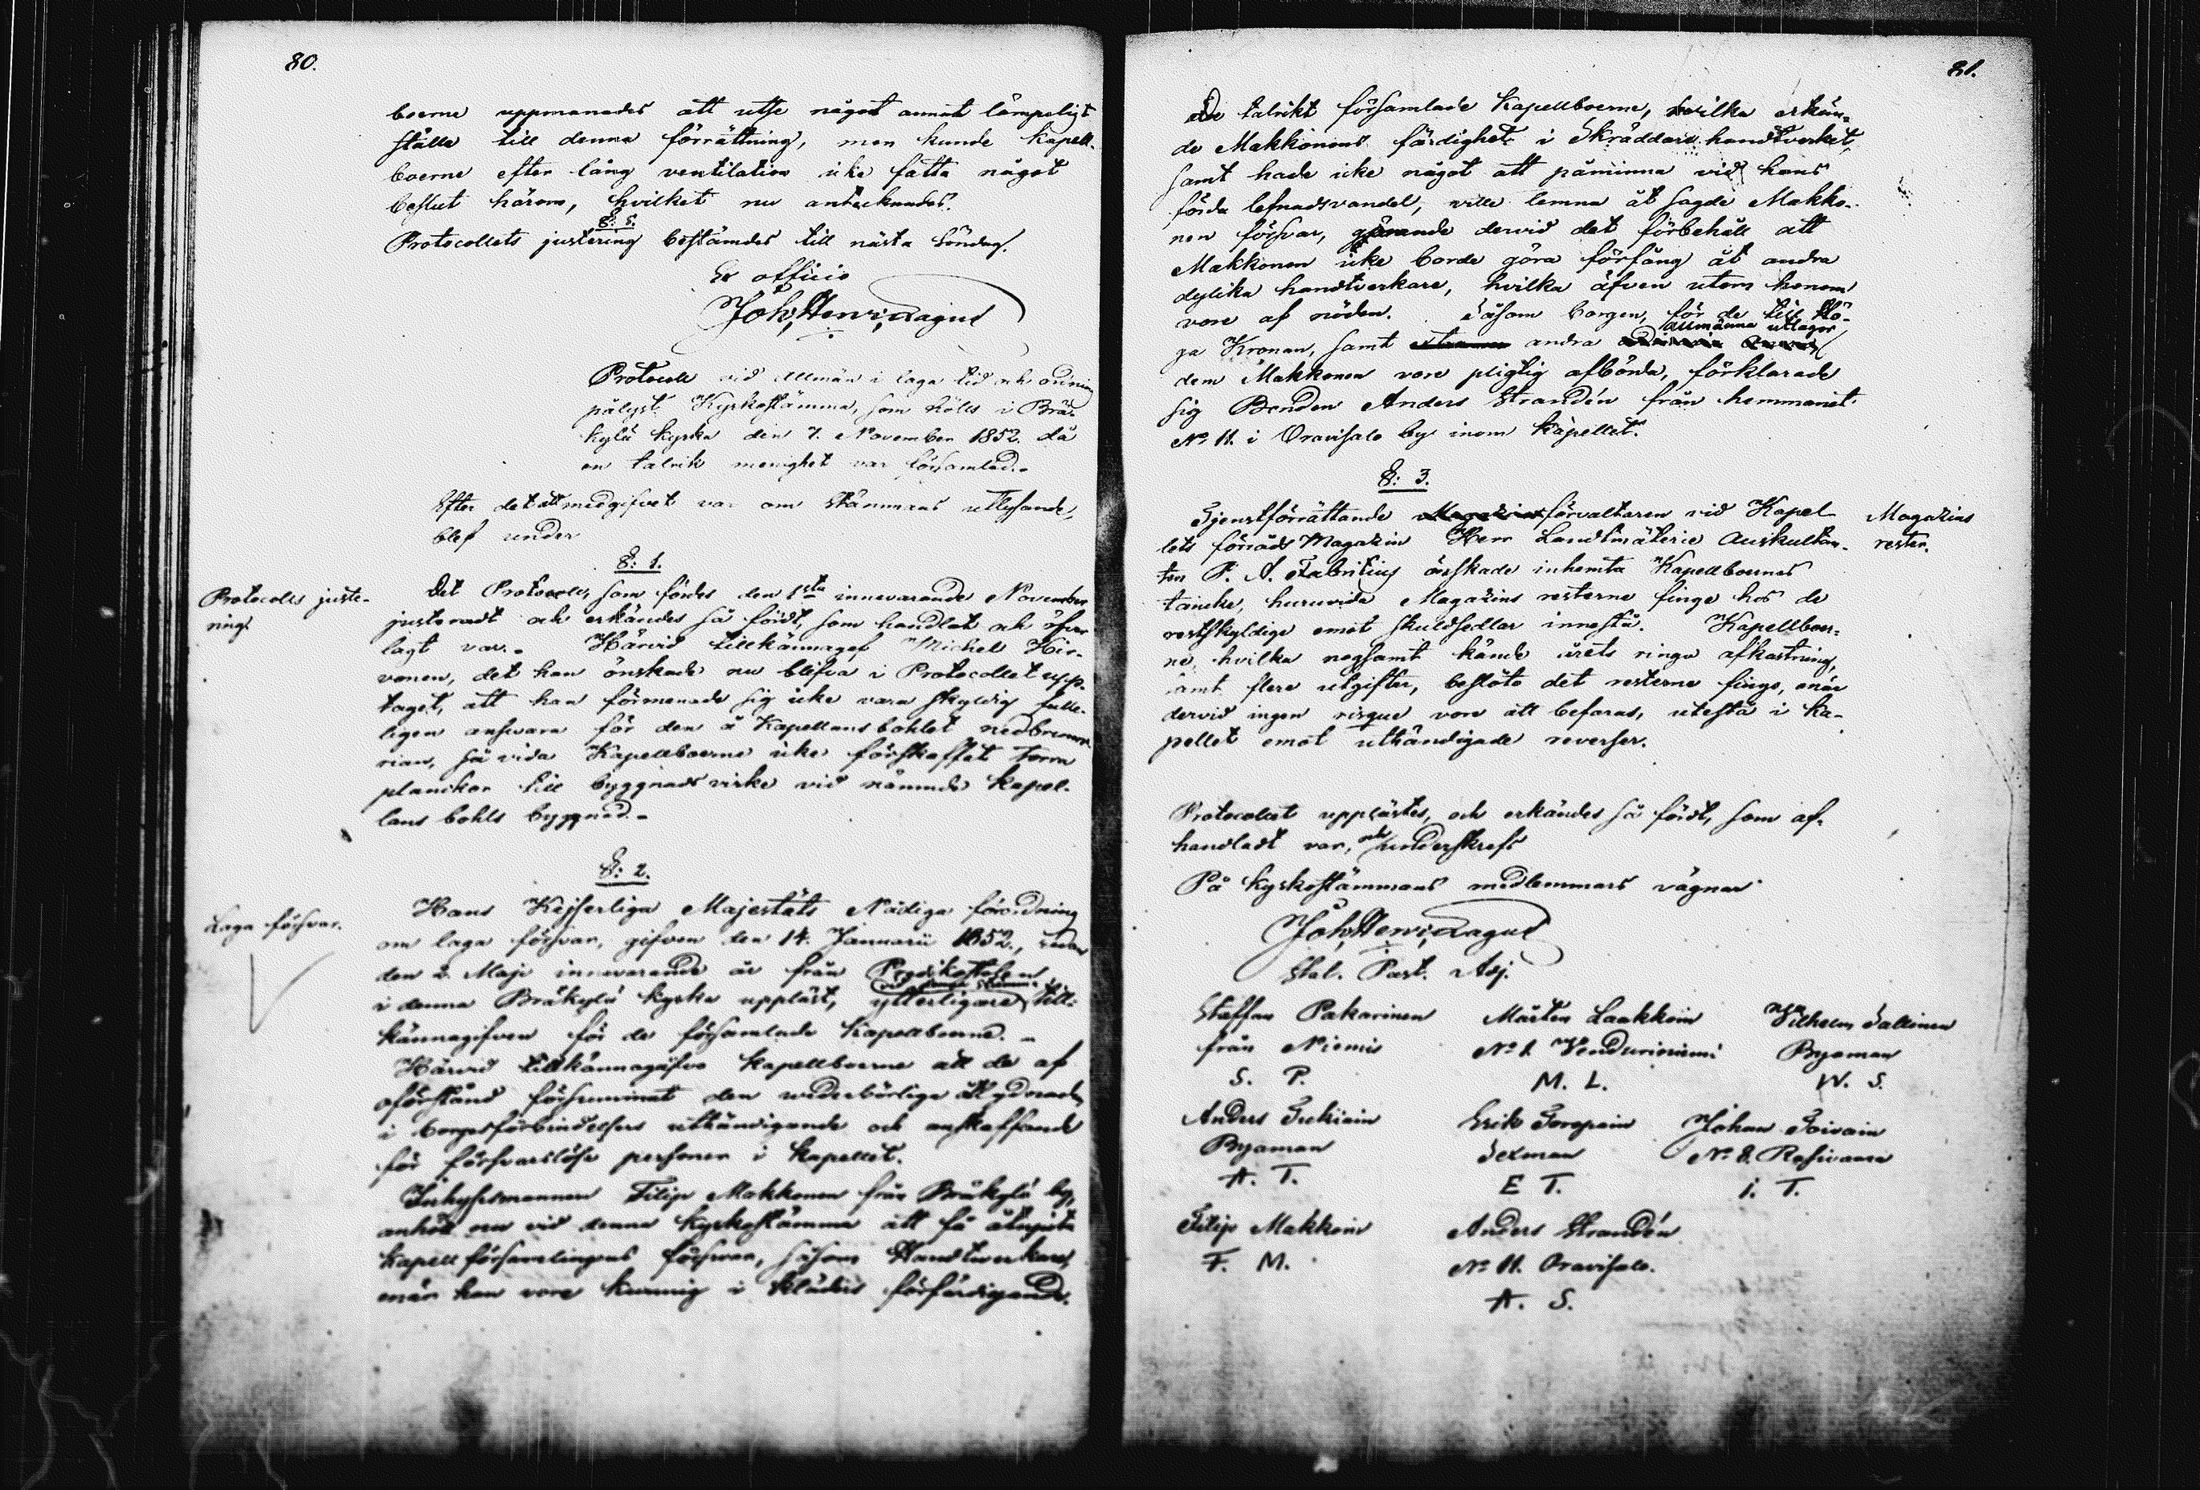 80.
boerne uppmanades att utse något annat lämpeligt
ställe till denna förrättning, men kunde Kapell-
boerne efter lång ventilation icke fatta något
beslut härom, hvilket nu antecknades.
§: 5.
Protocollets justering bestämdes till nästa Söndag.
Ex officio
Joh. Henr. Lagus
Protocoll vid allmän i laga tid och ordning
pålyst Kyrkostämma, som hölls i Brä-
kylä kyrka den 7. November 1852. då
en talrik menighet var församlad.-
Efter det att medgifvet var om stämmans utlysande,
blef under
§: 1.
Protocolls juste-
ring.
Det Protocoll, som fördes den 1sta innevarande November
justeradt och erkändes så fördt, som handlat och öfver
lagt var.- Härvid tillkännagaf Michel Hir-
vonen, det han önskade nu blifva i Protocollet upp-
taget, att han förmenade sig icke vara skyldig fulle-
ligen ansvara för den å Kapellansbohlet nedbrunna
rian, så vida Kapellboerne icke förskaffat torra
planckor till byggnadsvirke vid nämnde kapel-
lans bohls byggnad.-
§: 2.
Laga försvar.
Hans Kejserliga Majestäts Nådiga förordning
om laga försvar, gifven den 14. Januarii 1852., redan
den 2. Maji innevarande år från Predikostolen
i denna Bräkylä kyrka uppläst, ytterligare vid denna stämma till-
kännagifven för de församlade Kapellboerne.-
Härvid tillkännagåfvo Kapellboerne att de af
oförstånd försummat den wederbörliga åtlydnad,
i borgesförbindelsers uthändigande och anskaffande
för försvarslöse personer i Kapellet.
Inhysesmannen Filip Makkonen från Bräkylä by,
anhöll nu vid denna kyrkostämma att få åtnjuta
Kapellförsamlingens försvar, såsom Handtverkare,
enär han vore kunnig i kläders förfärdigande.
81.
De talrikt församlade Kapellboerne, hvilka erkän-
de Makkonens färdighet i Skräddare handtverket,
samt hade icke något att påminna vid hans
förda lefnadsvandel, ville lemna åt sagde Makko-
nen försvar, görande dervid det förbehåll att
Makkonen icke borde göra förfång åt andra
dylika handtverkare, hvilka äfven utom honom
vore af nöden. Såsom borgen, för de till Hö-
ga Kronan, samt andra allmänna utlagor
dem Makkonen vore pligtig afbörda, förklarade
sig Bonden Anders Strandén från hemmanet
No 11. i Oravisalo by inom Kapellet.
§: 3.
Magazins
rester.
Tjenstförrättande förvaltaren vid Kapel-
lets förråds Magazin Herr Landtmäterie Auskultan-
ten P. A. Fabritius önskade inhemta Kapellboernes
tancke, huruvida Magazins resterne finge hos de
restskyldige emot skuldsedlar innestå. Kapellboer-
ne, hvilka nogsamt kände årets ringa afkastning,
samt flere utgifter, beslöto det resterne finge, enär
dervid ingen risque vore att befaras, utestå i Ka-
pellet emot uthändigade reverser.
Protocollet upplästes, och erkändes så fördt, som af-
handladt var, och underskrefs
På kyrkostämmans medlemmars vägnar
Joh. Henr. Lagus
Stal. Past. Adj.
Staffan Pakarinen Mårten Laakkoin Wilhelm Sallinen
från Niemis No 1. Vendurinniemi Byaman
S. P. M. L. W. S.
Anders Turkiain Erik Toropain Johan Toivain
Byaman Sexman No 8. Rasivaara
A. T. E T. I. T.
Filip Makkoin Anders Strandén
F. M. No 11. Oravisalo.
A. S.